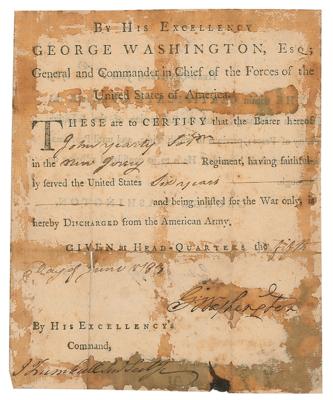 By His Excellency
GEORGE WASHINGTON, Esq;
General and Commander in Chief of the Forces of the
United States of America.
THESE are to CERTIFY that the Bearer hereof
John
in the New Jersey Regiment, having faithful-
ly served the United States Six years
and being inlisted for the War only, is
hereby Discharged from the American Army.
GIVEN at Head-Quarters the Fifth
Day of June 1783
GWashington
By His Excellency's
Command,
J Trumbull Jun Secy